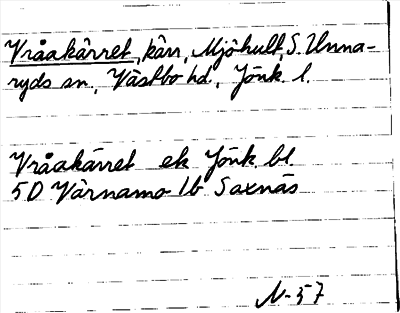 Vråakärret, kärr, Mjöhult, S. Unna-
ryds sn., Västbo hd., Jönk. l.
Vråakärret ek Jönk. bl
5D Värnamo 1b Saxnäs
N-57